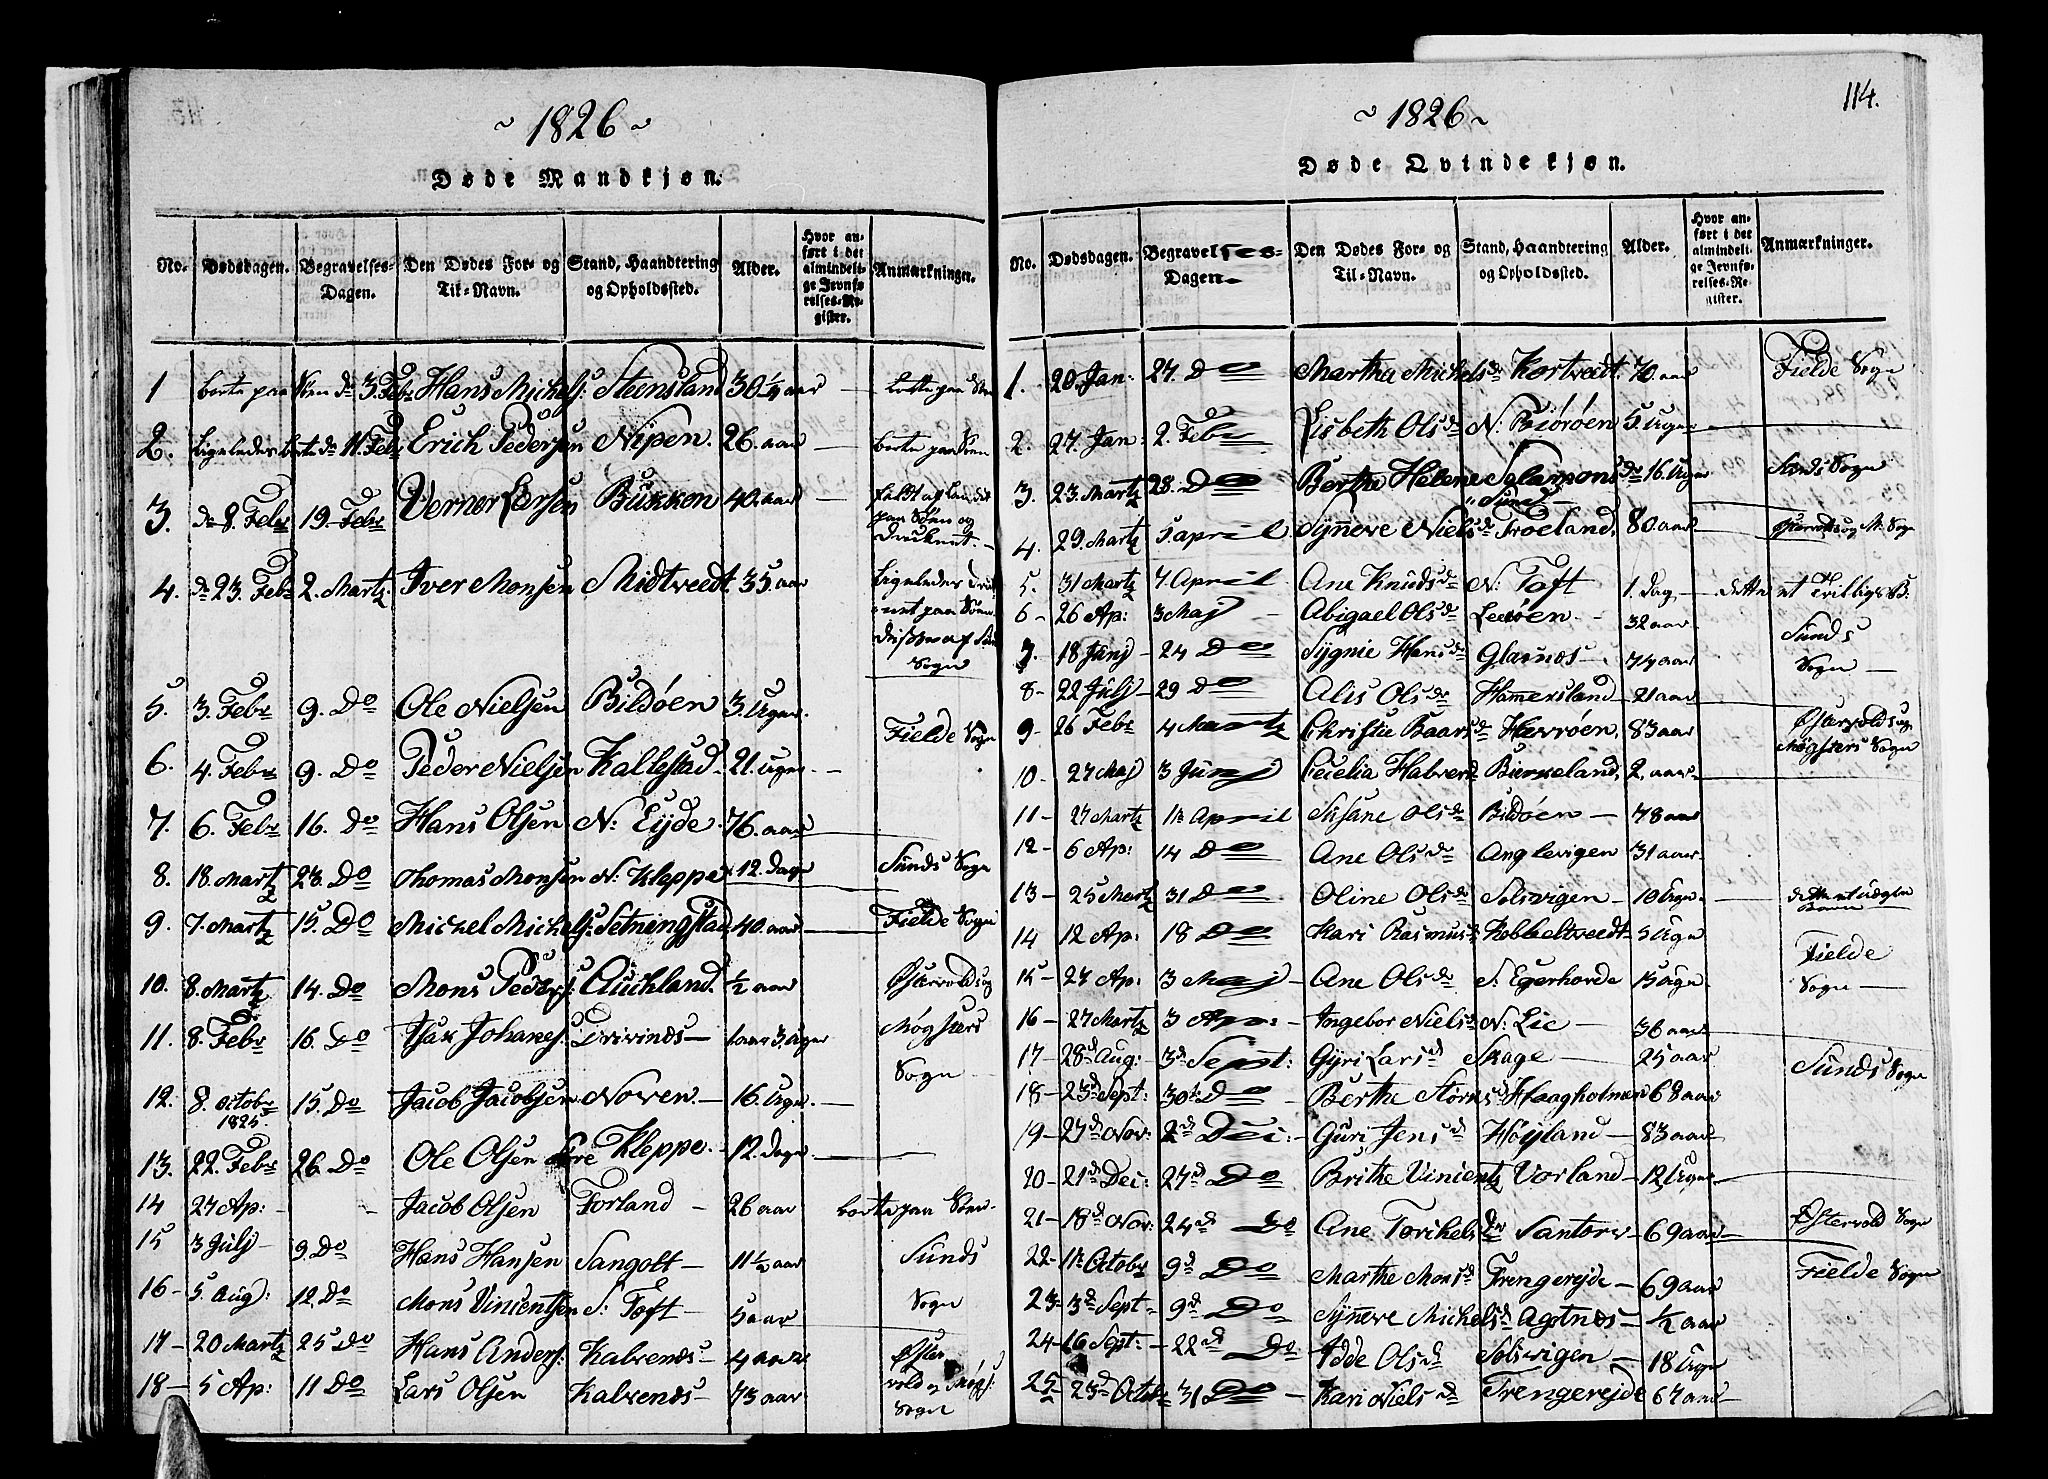 ~ 1826 ~
Døde Mandkjøn.
No. Dødsdagen. Begravelses-Dagen. Den Dødes For- og Til-Navn. Stand, Haandtering og Opholdssted. Alder. Hvor anført i det almindelige Jevnførelses-Register. Anmærkninger.
1 borte paa Søen d 3. Febr Hans Michels: Steensland 30 1/2 aar — borte paa Søen
2. Ligeledes borte d 11. Febr Erich Pedersen Nipen. 26. aar borte paa Søen
3. d 8. Febr 19. Febr Verner Larsen Bukken 40. aar —
paa Søen og
Druknet. —
4. d 23. Febr 2. Martz Iver Monsen Midtveedt. 35. aar Ligeledes Druk
net paa Søen.
Disse af Sunds
Sogn
5. 3. Febr 9. Do Ole Nielsen Bildøen 3. Uger.
Fielde Sogn
6. 4. Febr 9. Do Peder Nielsen Kallestad. 21. Uger —
7. 6. Febr 16. Do Hans Olsen N: Eyde. 76. aar
8. 18. Martz 23. Do Thomas Monsen N: Kleppe. 12. Dage Sunds Sogn
9. 7. Martz 15. Do Michel Michels: Setningstad 40. aar Fielde Sogn
10. 8. Martz 14. Do Mons Peders: Auchland. 1/2 aar Østervold og
11. 8. Febr 16. Do Isax Johanes: Drivinds — 1 aar 3. Uger Møgsters
Sogn
12. 8. Octobr 1825. 15. Do Jacob Jacobsen Noven — 16 Uger. —
13. 22. Febr 26. Do Ole Olsen Kleppe. — 12. Dage
14 27 Ap: — - Jacob Olsen Forland — 26 aar borte paa Søen.
15 3 Julj — 9. Do Hans Hansen Sangolt — 11 1/2 aar Sunds
16 — 5. Aug: 12. Do Mons Vincentsen S: Toft — 5 aar Sogn
17 — 20 Martz 25 Do Hans Anders: Kalvenes — 4 aar Øster
18 — 5 Ap: 11 Do Lars Olsen Kalvenes — 73 aar vold og Møgs:
Sogn
114.
~ 1826 ~
Døde Qvindekjøn.
No. Dødsdagen. Begravelses-Dagen. Den Dødes For- og Til-Navn. Stand, Haandtering og Opholdssted. Alder. Hvor anført i det almindelige Jevnførelses-Register. Anmærkninger.
1. 20. Jan: 27. Do Martha Michelsd Kortvedt. 70. aar Fielde Sogn
2. 27. Jan: 2. Febr Lisbeth Olsd N. Biørøen 5 Uger
3. 23. Martz 28. Do Berthe Helene Salamonsd 16. Uger Sunds Sogn
" Sund —
4. 29. Martz 5 april Synneve Nielsd Troeland. 80. aar Østervold og M: Sogn
5. 31 Martz 7. April Ane Knudsd N: Toft 1. Dag. — dette et Tvilling B:
6 — 26 Ap: 3 Maj — Abigael Olsd Leeøen. — 32 aar
Sunds
7. 18 Junj — 24 Do Sygnie Hansd Glasnes — 74 aar Sogn —
8 — 22 Julj — 29 Do Alis Olsd Hammersland — 21 aar
9 — 26 Febr 4 Martz Christie Baarsd Herrøen. 83 aar Østervold og
Møgsters Sogn
10 — 27 Maj 3 Junj Cecelia Halversd Birkeland. 2. aar
11 — 27 Martz 11 April Susane Olsd Bildøen — 78 aar
12 — 6 Ap: 14 Do Ane Olsd Anglevigen 31 aar.
13 — 25 Martz 31 Do Oline Olsd Solsvigen — 10 Uger. — dette et uægte
Barn
14 12 Ap: 18 Do Kari Rasmusd Kobbeltvedt — 5 Uger
Fielde
15 — 27 Ap: 3 Maj Ane Olsd S. Egerhovde 15 Uger Sogn —
16 — 27 Martz 3 Ap: — Ingebor Nielsd N: Lie — 36 aar
17 — 28d Aug: 3d Sept: Gyri Larsd Skage — 25 aar Sunds Sogn
18 — 23d Sept: 30te Do Berthe Størksd Haagholmen 68 aar
19 — 27d Nov: 2d Dec: — Guri Jensd Høyland — 83 aar
20 — 21d Dec: 27d Do Brithe Vincentz Vorland — 12 Uger
21 — 18d Nov: 24d Do Ane Torkelsdr Santorv — 69 aar Østervold Sogn
22 — 1te Octobr 9d Do Marthe Monsd Trengereyde — 69 aar Fielde Sogn
23 — 3d Sept — 9d Do Synneve Michelsd Agotnes — 1/2 aar
24 — 16 Sept: — 22d Do Idde Olsd Solsvigen — 18 Uger
25 — 23d Octobr 31 Do — Kari Nielsd Trengereyde 67 aar